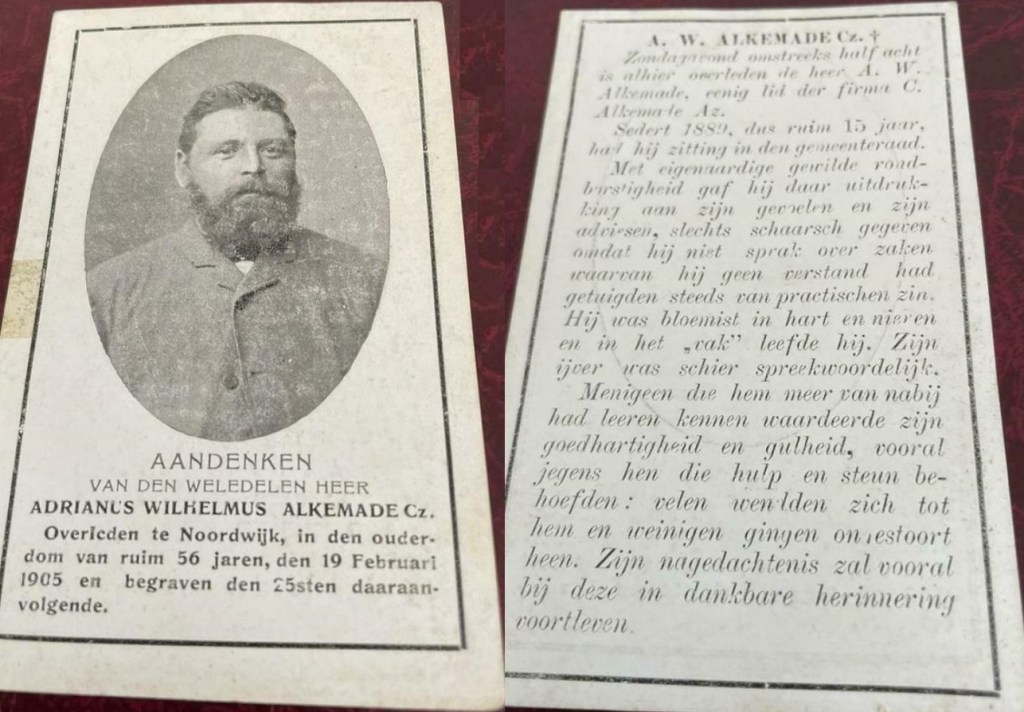 AANDENKEN
VAN DEN WELEDELEN HEER
ADRIANUS WILHELMUS ALKEMADE Cz.
Overleden te Noordwijk, in den ouder-
dom van ruim 56 jaren, den 19 Februari
1905 en begraven den 25sten daaraan-
volgende.
A. W. ALKEMADE Cz. †
Zondagavond omstreeks half acht
is alhier overleden de heer A. W.
Alkemade, eenig lid der firma C.
Alkemade Az.
Sedert 1889, dus ruim 15 jaar,
had hij zitting in den gemeenteraad.
Met eigenaardige gewilde rond-
borstigheid gaf hij daar uitdruk-
king aan zijn gevoelen en zijn
adviesen, slechts schaarsch gegeven
omdat hij niet sprak over zaken
waarvan hij geen verstand had
getuigden steeds van practischen zin.
Hij was bloemist in hart en nieren
en in het „vak” leefde hij. Zijn
ijver was schier spreekwoordelijk.
Menigeen die hem meer van nabij
had leeren kennen waardeerde zijn
goedhartigheid en gulheid, vooral
jegens hen die hulp en steun be-
hoefden: velen wendden zich tot
hem en weinigen gingen ongestoort
heen. Zijn nagedachtenis zal vooral
bij deze in dankbare herinnering
voortleven.